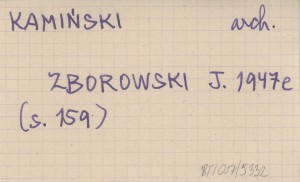 KAMIŃSKI arch.
ZBOROWSKI J. 1947e
(s. 159)
BT/017/5332